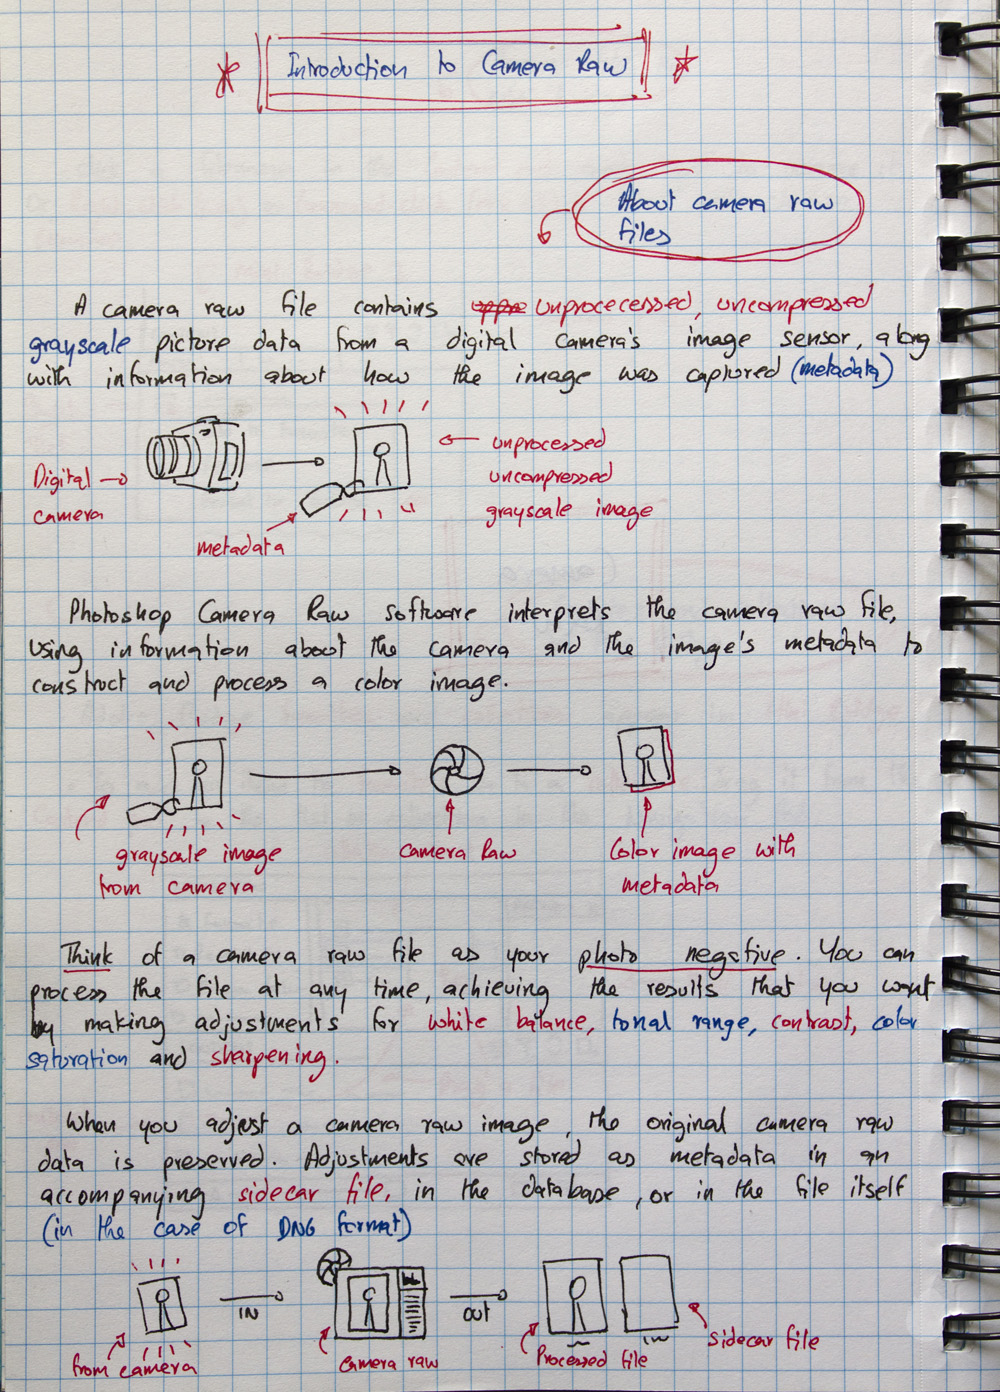 Introduction to Camera Raw
About camera raw
files
A camera raw file contains unprocecessed, uncompressed
grayscale picture data from a digital camera's image sensor, along
with information about how the image was captured (metadata)
Digital
camera
metadata
unprocessed
uncompressed
grayscale image
Photoshop Camera Raw software interprets the camera raw file,
using information about the camera and the image's metadata to
construct and process a color image.
grayscale image
from camera
camera Raw
Color image with
metadata
Think of a camera raw file as your photo negative. You can
process the file at any time, achieving the results that you want
by making adjustments for white balance, tonal range, contrast, color
saturation and sharpening.
When you adjust a camera raw image, the original camera raw
data is preserved. Adjustments are stored as metadata in an
accompanying sidecar file, in the database, or in the file itself
(in the case of DNG format)
IN
OUT
from camera
camera raw
Processed file
sidecar file